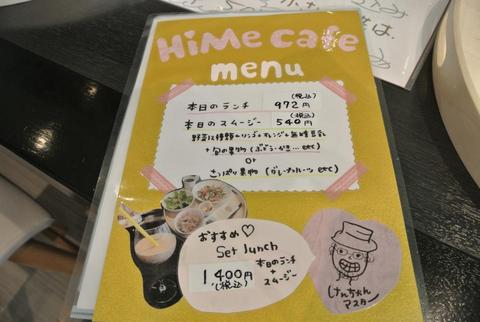 HiMe cafe
menu
(税込)
本日のランチ 972円
(税込)
本日のスムージー 540円
野菜12種類+リンゴ+オレンジ+無糖豆乳
+旬の果物(ぶどう・かき…etc)
or
さっぱり果物(グレープフルーツetc)
おすすめ♡
Set lunch
1400円
(税込)
本日のランチ
+
スムージー
けんちゃん
マスター